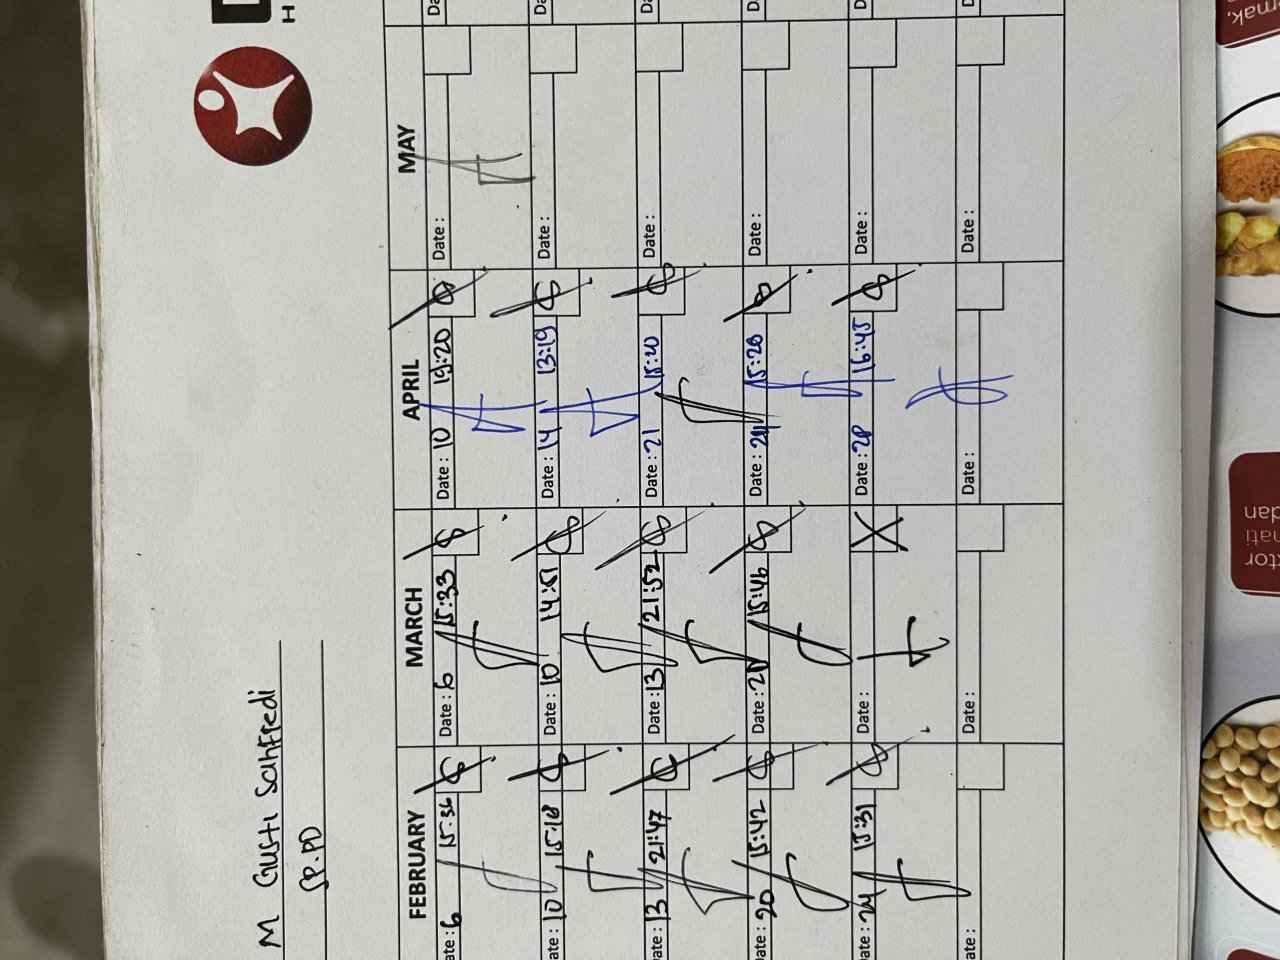 M Giusti Sanffedi
SP.PD
FEBRUARY MARCH APRIL MAY
ate: 6 15:36 Date: 6 15:33 Date: 10 19:20 Date:
ate: 10 15:18 Date: 10 14:51 Date: 14 13:19 Date:
ate: 13 21:47 Date: 13 21:52 Date: 21 15:20 Date:
ate: 20 15:42 Date: 20 15:46 Date: 15:28 Date:
ate: 24 15:31 Date: Date: 28 16:45 Date:
ate: Date: Date: Date:
emak,
ktor
hati
dan